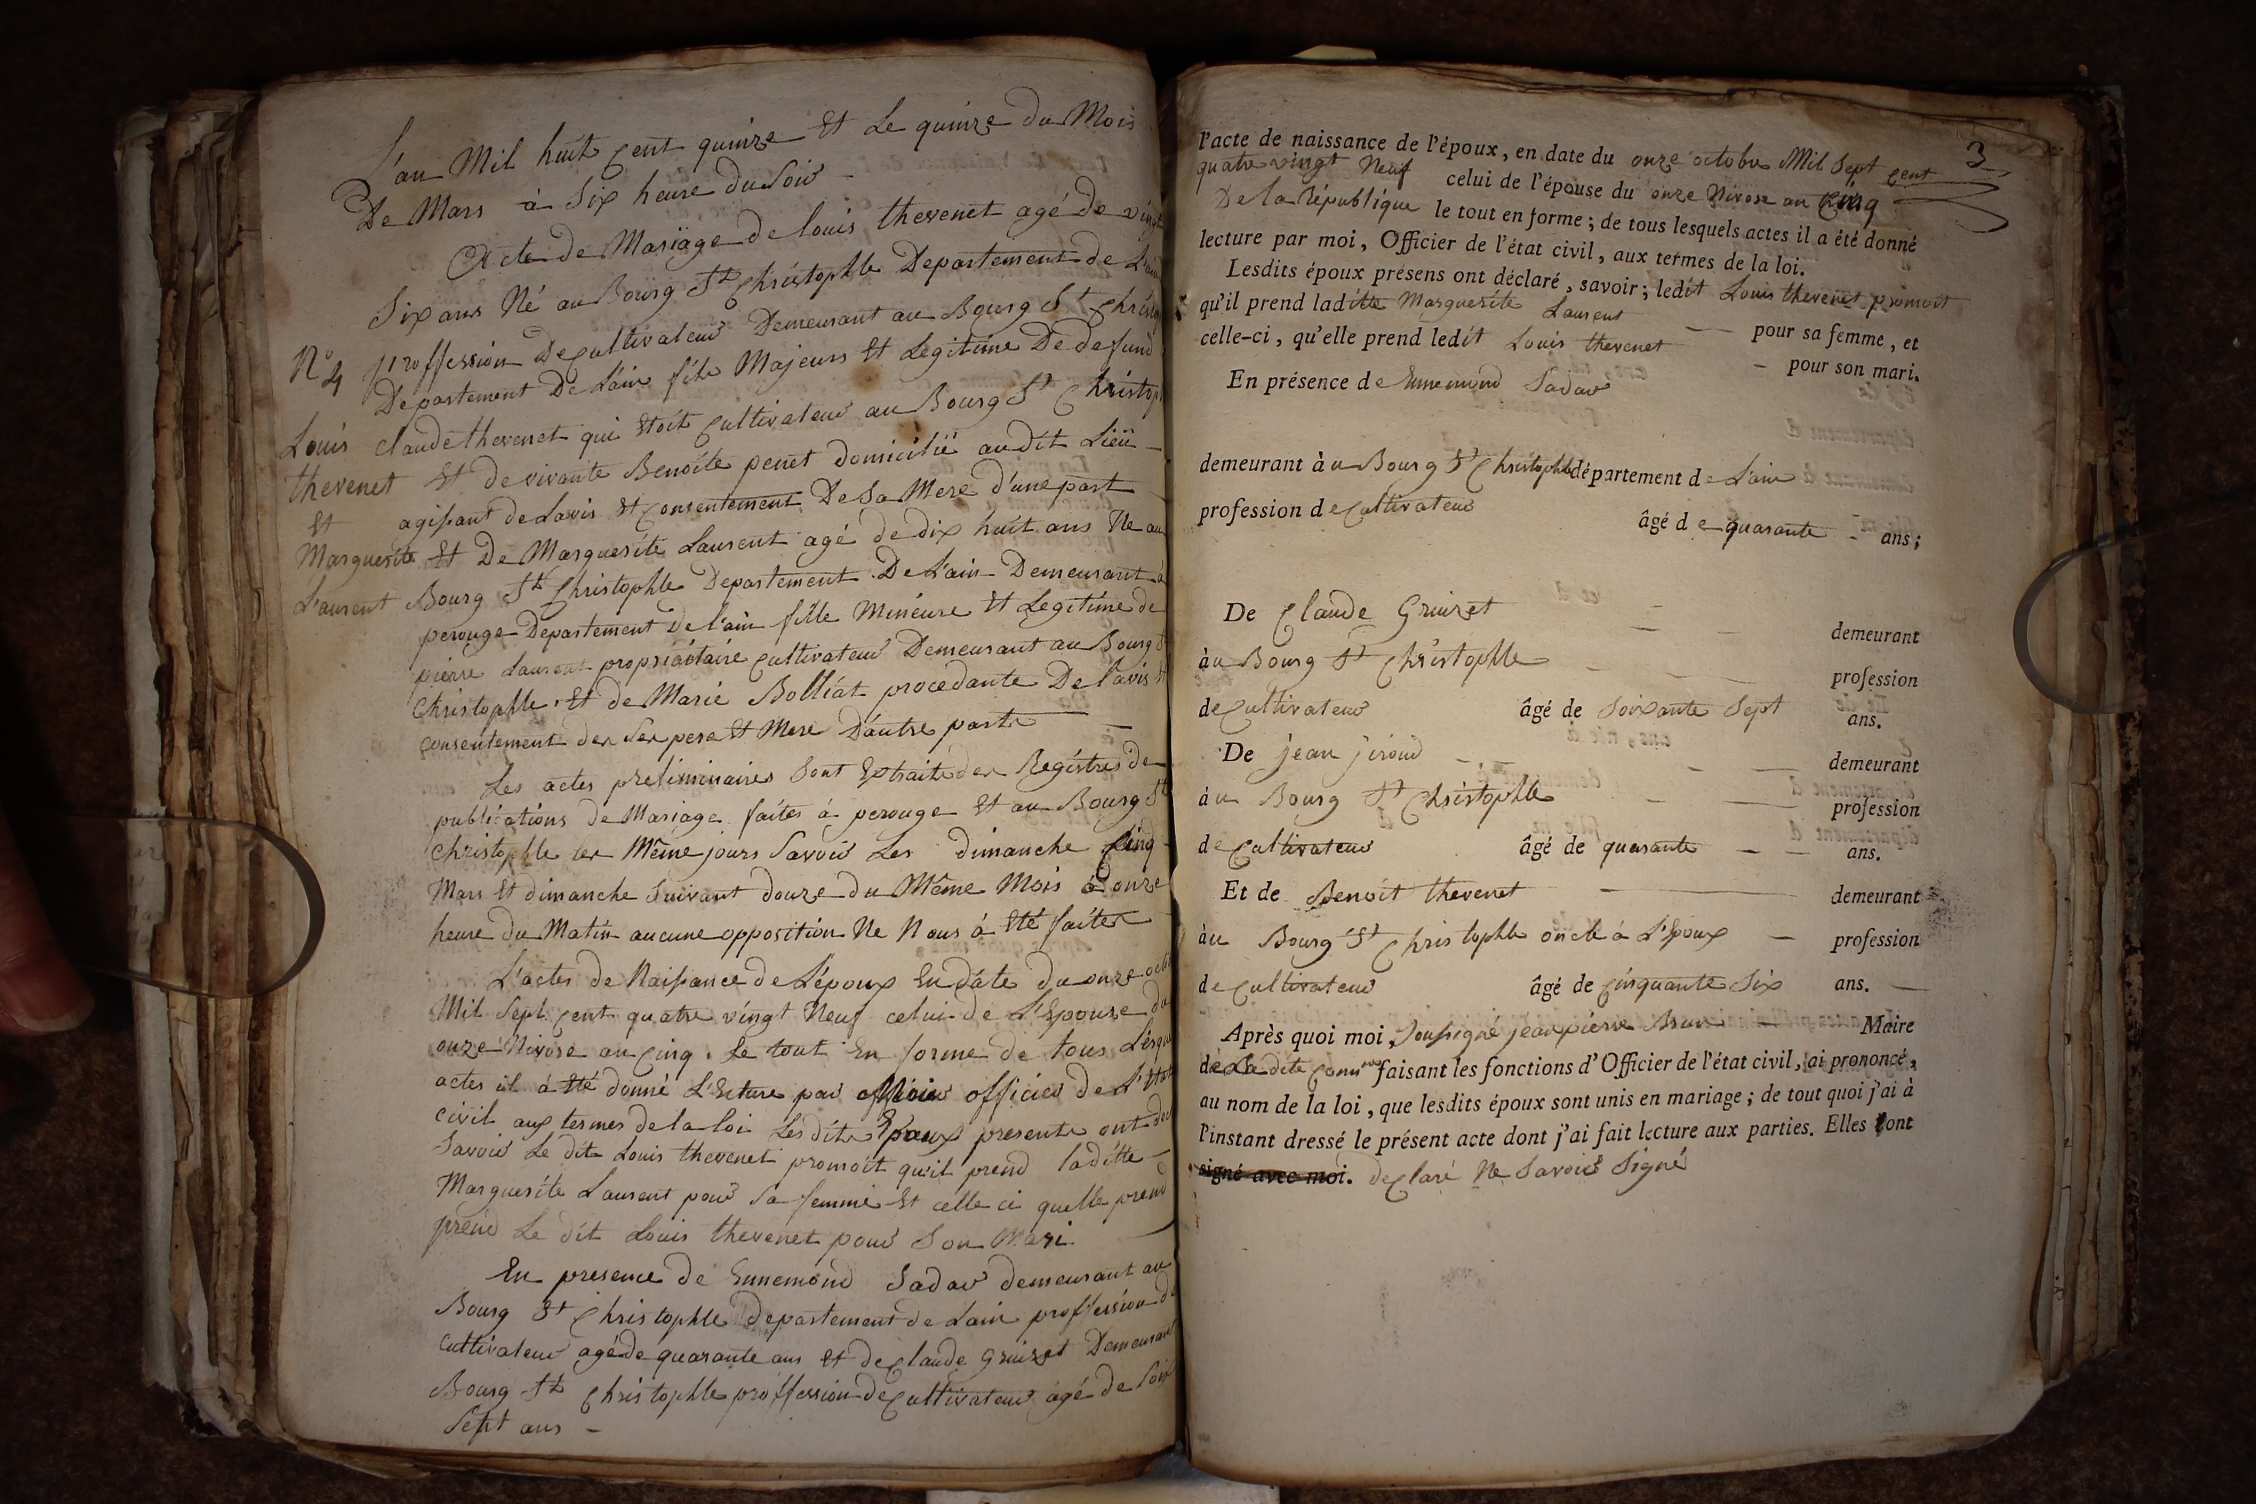 L'an Mil huit cent quinze Et Le quinze du Mois
De Mars à Six heure du Soir
Acte de Mariage de louis thevenet agé de vingt
Six ans Né au Bourg St Christophle Departement de L'ain
proffession De cultivateur Demeurant au Bourg St Christop
Departement De L'ain fils Majeurs Et Legitime De defund
Claude thevenet qui Etoit Cultivateur au Bourg St Christop
Et de vivante Benoite penet domicilié audit Lieu
agissant de Lavis Et Consentement De Sa Mere d'une part
Et De Marguerite Laurent agé de dix huit ans Ne au
Bourg St Christophle Departement De L'ain Demeurant à
perouge Departement de l'ain fille Mineure Et Legitime de
pierre Laurent propriaitaire Cultivateur Demeurant au Bourg St
Christophle Et de Marie Bolliat procedante De l'avis Et
Consentement des Ses pere Et Mere D'autre part
N° 4
Louis
thevenet
Et
Marguerite
Laurent
Les actes preliminaires Sont Extraits des Registres de
publications de Mariage faites à perouge Et au Bourg St
Christophle les Même jours Savoir Les dimanche Cinq
Mars Et dimanche Suivant douze du Même Mois à onze
heure du Matin aucune opposition Ne Nous à Eté faites
L'actes de Naissance de L'époux En date du onze oct
Mil Sept Cent quatre vingt Neuf celui de L'Epouse du
onze Nivose an Cinq. Le tout En forme de tous Lesqu
actes il à Eté donné L'Ecture par officier de L'Etat
Civil aux termes de la loi Les dits Epoux presents ont de
Savoir Le dit Louis thevenet promoit qu'il prend laditte
Marguerite Laurent pour Sa femme Et celle ci quelle prend
prend Le dit Louis thevenet pour Son Mari
En presence de Ennemond Sadar demeurant au
Bourg St Christophle departement de Lain proffession de
Cultivateur agé de quarante ans Et de Claude Gruizet Demeurant
Bourg St Christophle proffession de Cultivateur agé de Soix
Sept ans
3
l'acte de naissance de l'époux, en date du onze octobre Mil Sept cent
quatre vingt Neuf celui de l'épouse du onze Nivose an Cinq
De la République le tout en forme ; de tous lesquels actes il a été donné
lecture par moi, Officier de l'état civil, aux termes de la loi.
Lesdits époux présens ont déclaré, savoir ; ledit Louis thevenet promoit
qu'il prend laditte Marguerite Laurent pour sa femme, et
celle-ci, qu'elle prend ledit Louis thevenet pour son mari.
En présence de Ennemond Sadar
demeurant à u Bourg St Christophle département de L'ain
profession de Cultivateur âgé de quarante ans ;
De Claude Gruizet demeurant
à u Bourg St Christophle profession
de Cultivateur âgé de Soixante Sept ans.
De jean jiroud demeurant
à u Bourg St Christophle profession
de Cultivateur âgé de quarante ans.
Et de Benoit thevenet demeurant
à u Bourg St Christophle oncle à L'Epoux profession
de Cultivateur âgé de Cinquante Six ans.
Après quoi moi, Soussigné jean pierre Brun Maire
de La dite Commune faisant les fonctions d'Officier de l'état civil, ai prononcé,
au nom de la loi, que lesdits époux sont unis en mariage ; de tout quoi j'ai à
l'instant dressé le présent acte dont j'ai fait lecture aux parties. Elles ont
signé avec moi. declaré Ne Savoir Signé